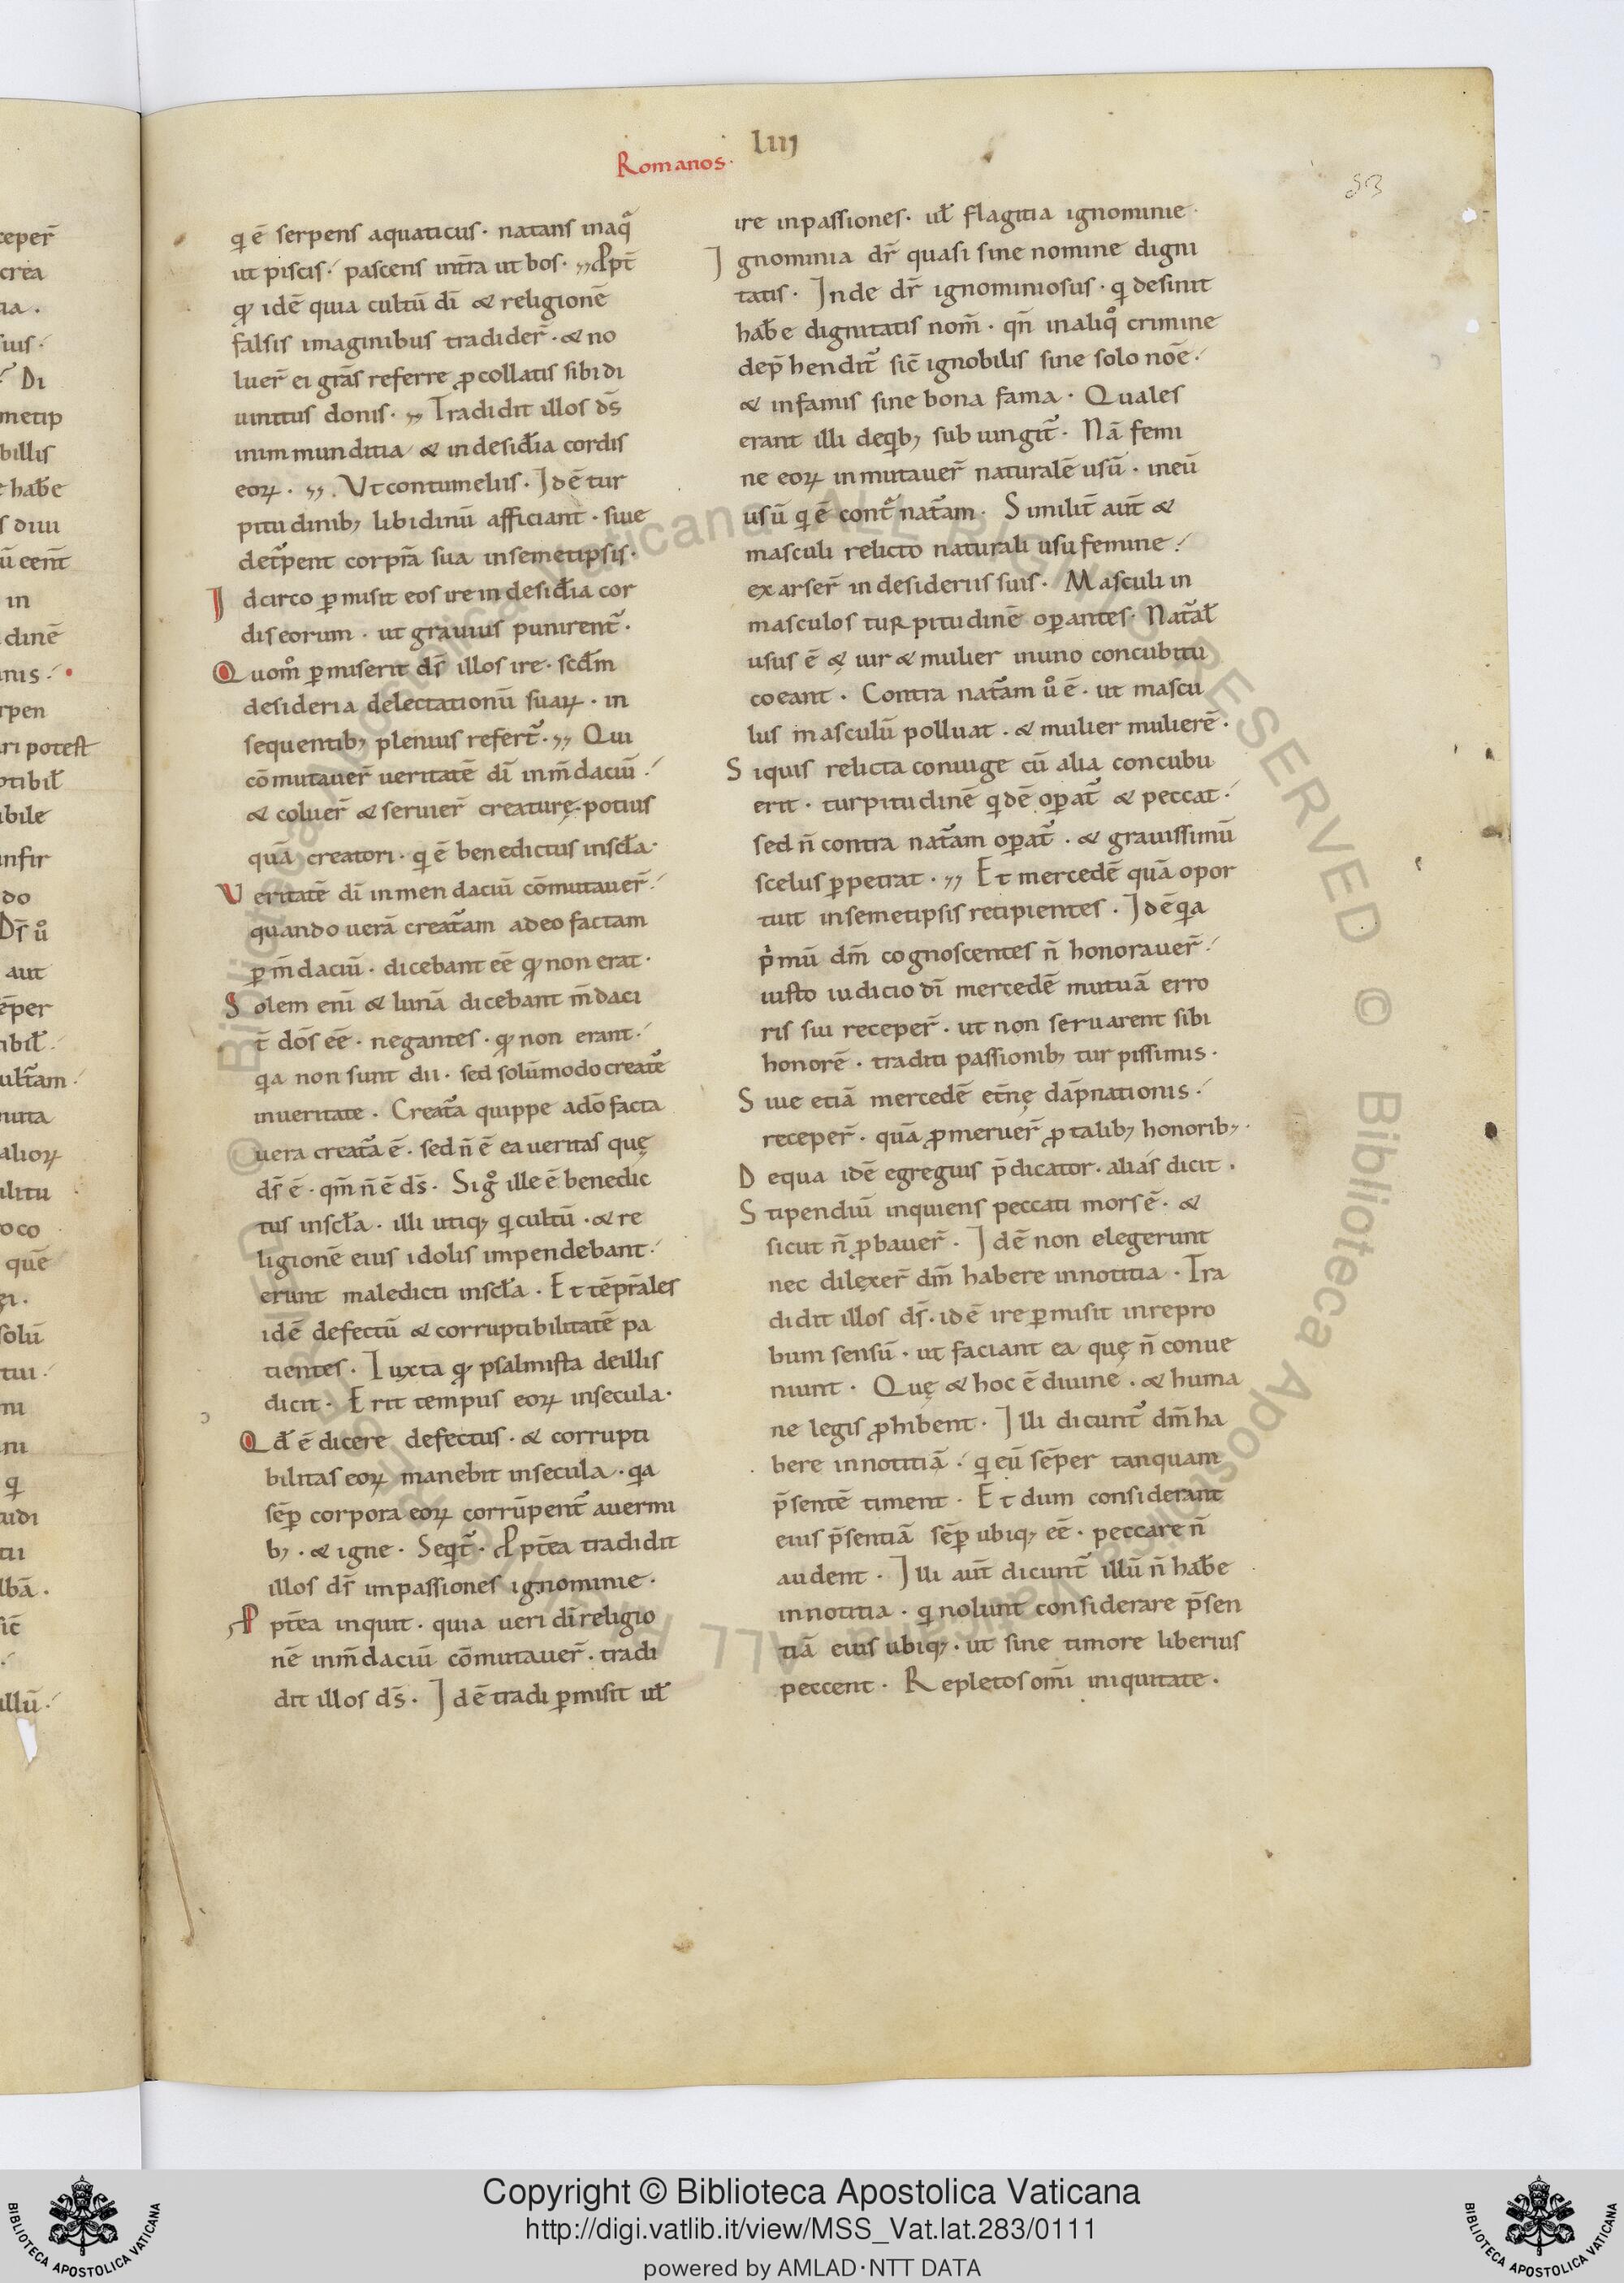 Romanos.
liiij
53
q̄ ē serpens aquaticus · natans inaq̊
ut piscis ⸵ pascens int̄ra ut bos · ,, Ppt̄
qđ idē quia cultū dī & religionē
falsis imaginibus tradider̄ · & no
luer̄ ei grās referre ꝓ collatis sibi di
uinitus donis · ,, Tradidit illos ds̄
inimmunditia & indesid̄ia cordis
eoꝝ · ,, Vt contumeliis · Idē tur
pitudinib; libidinū afficiant · siue
det̄pent corpr̄a sua insemetipsis ·
Idcirco ꝑmisit eos ire in desid̄ia cor
dis eorum · ut grauius punirent̄ ·
Quom̊ ꝑmiserit ds̄ illos ire · scd̄m
desideria delectationū suaꝝ · in
sequentib; plenius refert̄ · ,, Qui
cōmutauer̄ ueritatē dī inm̄daciū ⸵
& coluer̄ & seruier̄ creaturę potius
quā creatori · q̄ ē benedictus inscl̄a ·
Veritatē dī inmendaciū cōmutauer̄ ⸵
quando uerā creat̄am adeo factam
ꝑ m̄daciū · dicebant eē̄ qđ non erat ·
Solem eni & lunā dicebant m̄daci
t̄ dōs eē̄ · negantes · qđ non erant ⸵
q̄a non sunt dii · sed solūmodo creatē
inueritate · Creat̄a quippe adō facta
uera creat̄a ē · sed n̄ ē ea ueritas quę
ds̄ ē · qm̄ n̄ ē ds̄ · Sig̊ ille ē benedic
tus inscl̄a · illi utiq; q̄ cultū · & re
ligionē eius idolis impendebant ⸵
erunt maledicti inscl̄a · Et tēpr̄ales
idē defectū & corruptibilitatē pa
tientes · Iuxta qđ psalmista deillis
dicit · Erit tempus eoꝝ insecula ·
Qd̄ ē dicere defectus · & corrupti
bilitas eoꝝ manebit insecula · q̄a
sēꝑ corpora eoꝝ corrūpent̄ auermi
b; · & igne · Seqit̄ · Ppt̄ea tradidit
illos ds̄ impassiones ignominie ·
Ppt̄ea inquit · quia ueri dī religio
nē inm̄daciū cōmutauer̄ · tradi
dit illos ds̄ · Idē tradi ꝑmisit ul̄
ire inpassiones · ul̄ flagitia ignominie ·
Ignominia dr̄ quasi sine nomine digni
tatis · Inde dr̄ ignominiosus · q̄ desinit
hab̄e dignitatis nom̄ · qn̄ inaliq̊ crimine
dep̄hendit̄ sic̄ ignobilis sine solo noē ⸵
& infamis sine bona fama · Quales
erant illi deq̄b; subiungit̄ · Nā femi
ne eoꝝ inmutauer̄ naturalē usū · ineū
usū q̄ ē cont̄ nat̄am · Similit̄ aut̄ &
masculi relicto naturali usu femine ⸵
exarser̄ in desideriis suis · Masculi in
masculos turpitudinē oꝑantes · Nat̄al̄
usus ē ę uir & mulier inuno concubitu
coeant · Contra nat̄am ů ē · ut mascu
lus masculū polluat · & mulier mulierē ·
Siquis relicta coniuge cū alia concubu
erit · turpitudinē q̄dē oꝑat̄ & peccat ⸵
sed n̄ contra nat̄am oꝑat̄ · & grauissimū
scelus ꝑpetrat · ,, Et mercedē quā opor
tuit insemetipsis recipientes · Idē q̄a
pͥmū dm̄ cognoscentes n̄ honorauer̄ ⸵
iusto iudicio dī mercedē mutuā erro
ris sui receper̄ · ut non seruarent sibi
honorē · traditi passionib; turpissimis ·
Siue etiā mercedē et̄nę dāpnationis ⸵
receper̄ · quā ꝓmeruer̄ ꝓ talib; honorib; ·
Dequa idē egregius p̄dicator · alias dicit ·
Stipendiū inquiens peccati mors ē · &
sicut n̄ ꝓbauer̄ · Idē non elegerunt
nec dilexer̄ dm̄ habere innotitia · Tra
didit illos ds̄ · idē ire ꝑmisit inrepro
bum sensū · ut faciant ea quę n̄ conue
niunt · Quę & hoc ē diuine · & huma
ne legis ꝓhibent · Illi dicunt̄ dm̄ ha
bere innotitiā ⸵ q̄ eū sēper tanquam
p̄sentē timent · Et dum considerant
eius p̄sentiā sēꝑ ubiq; eē̄ · peccare n̄
audent · Illi aut̄ dicunt̄ illū n̄ hab̄e
innotitia · q̄ nolunt considerare p̄sen
tiā eius ubiq; · ut sine timore liberius
peccent · Repletos om̄i iniquitate ·
Copyright © Biblioteca Apostolica Vaticana
http://digi.vatlib.it/view/MSS_Vat.lat.283/0111
powered by AMLAD·NTT DATA